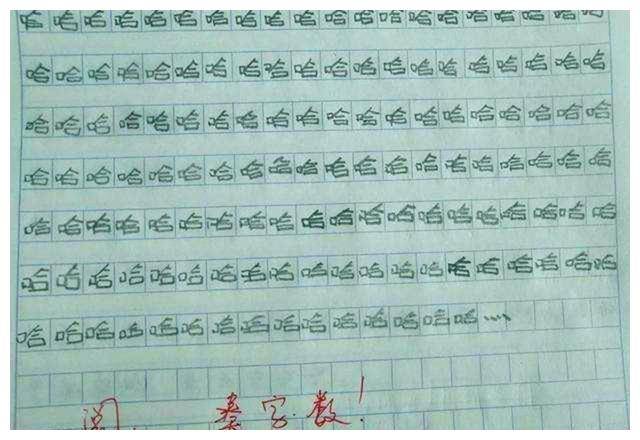 哈哈哈哈哈哈哈哈哈哈哈哈哈哈哈哈哈哈哈哈
哈哈哈哈哈哈哈哈哈哈哈哈哈哈哈哈哈哈哈哈
哈哈哈哈哈哈哈哈哈哈哈哈哈哈哈哈哈哈哈哈
哈哈哈哈哈哈哈哈哈哈哈哈哈哈哈哈哈哈哈哈
哈哈哈哈哈哈哈哈哈哈哈哈哈哈哈哈哈哈哈哈
哈哈哈哈哈哈哈哈哈哈哈哈哈哈哈哈哈哈哈哈
哈哈哈哈哈哈哈哈哈哈哈哈哈哈哈····
阅. 字数!